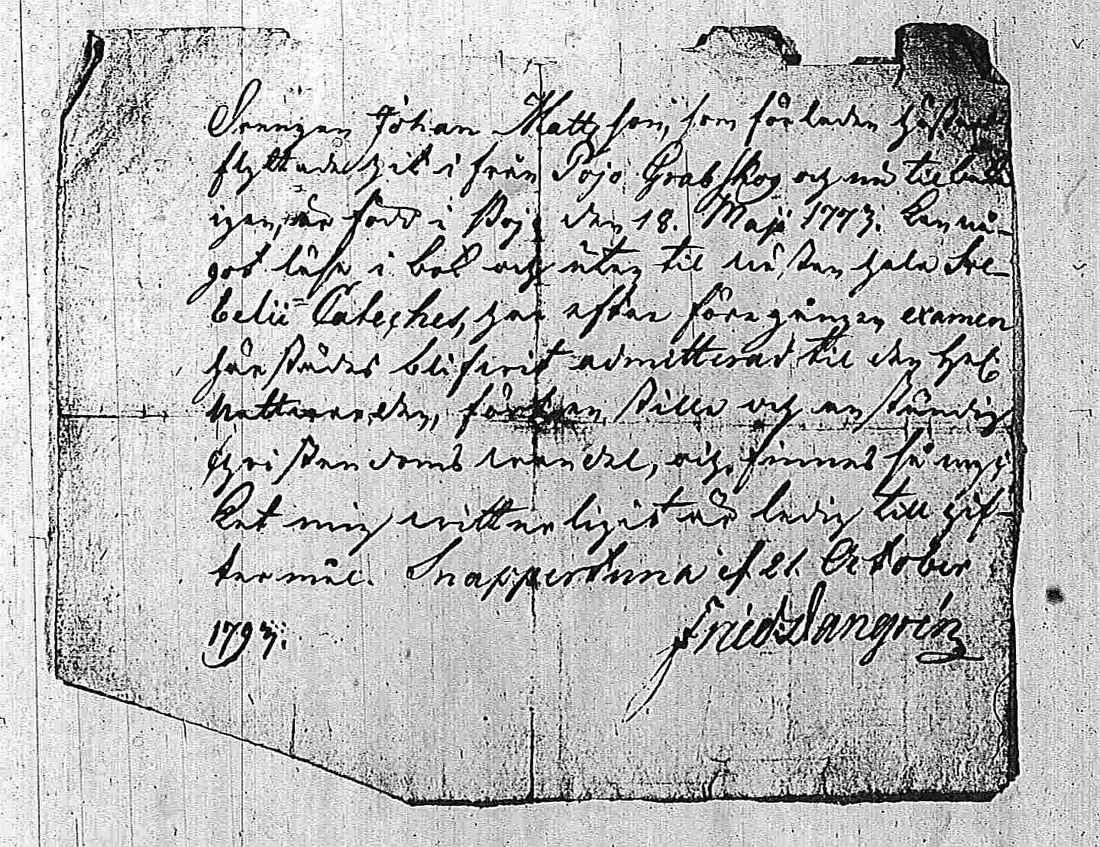 Drengen Johan Mattzson, som förleden höst
flyttade hit ifrån Pojo Grabskog och nu tilbaka
igen, är född i Pojo den 18. Maji 1773. Kan nå-
got läsa i bok och utan til nästan hela Sve-
belii Cateches, har efter föregången examen
härstädes blifvit admitterad til den Hel.
Nattvarden, fört en stilla och anständig
christendoms vandel, och finnes så myc-
ket mig witterligit är ledig till gif-
termål. Snapperstuna d. 21 October
1793.
Fried: Zangrén